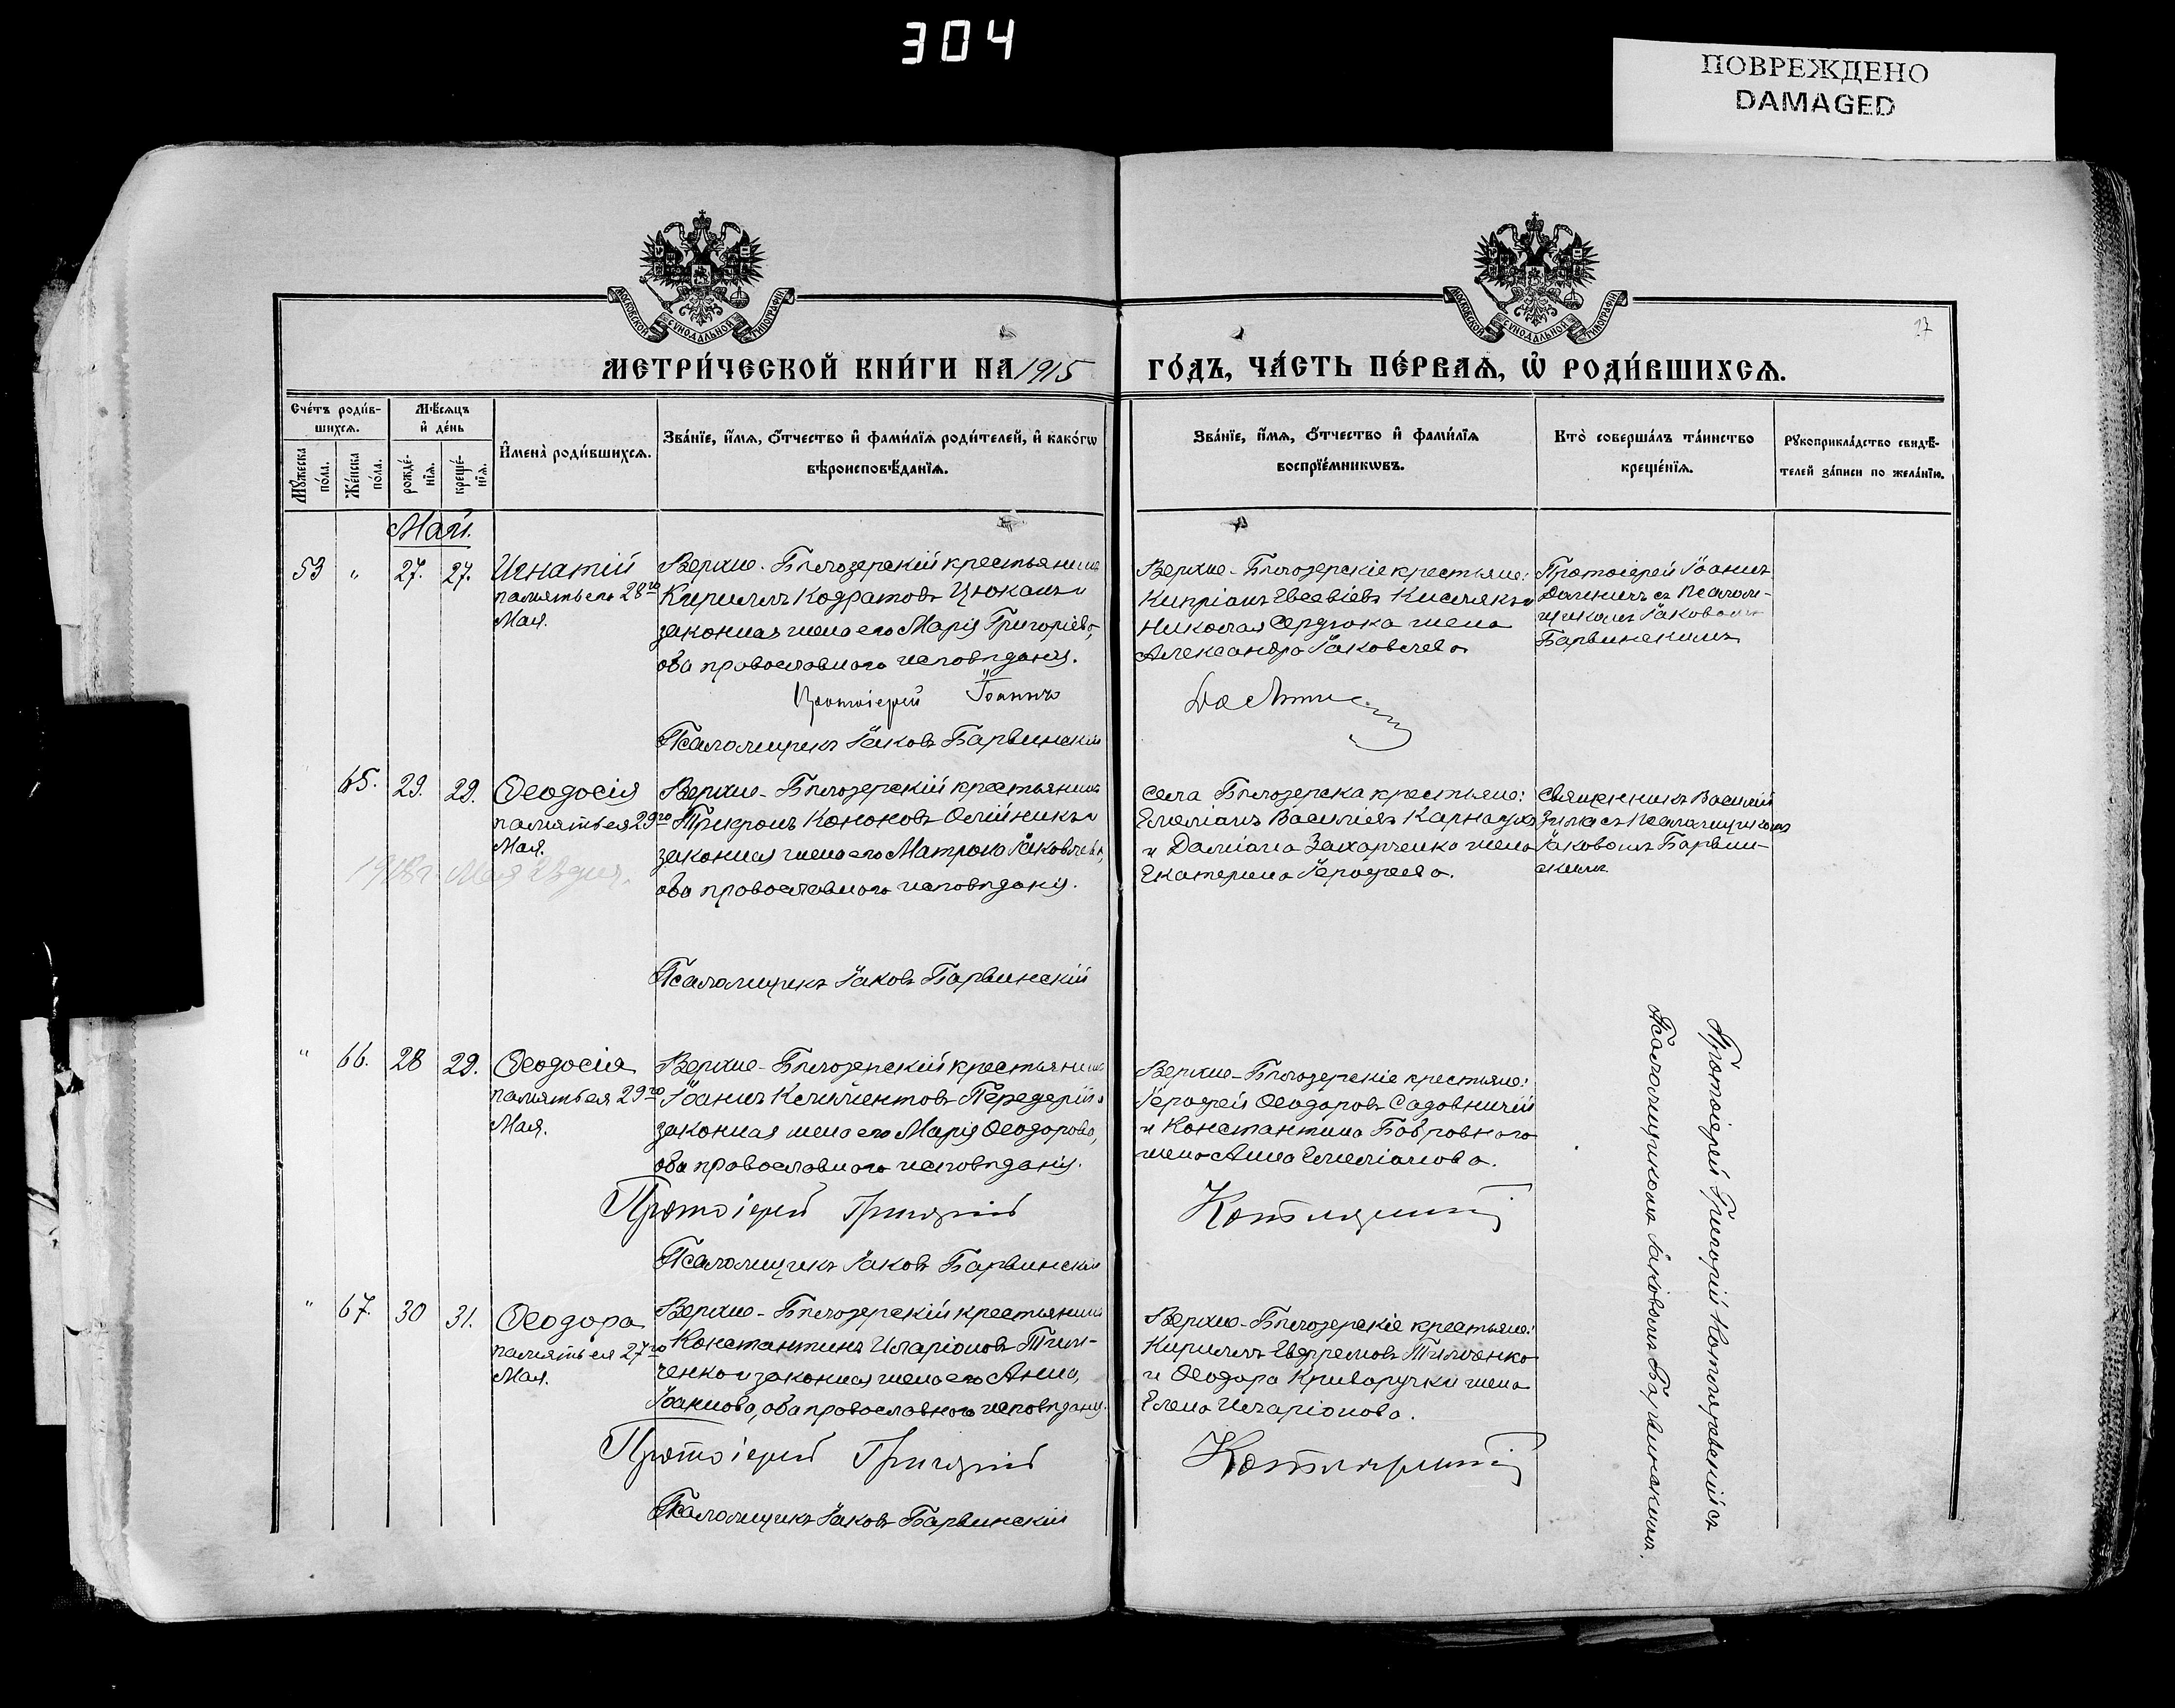 304
ПОВРЕЖДЕНО
DAMAGED
МОСКОВСКОЙ СѴНОДАЛЬНОЙ ТИПОГРАФІИ
МОСКОВСКОЙ СѴНОДАЛЬНОЙ ТИПОГРАФІИ
27
МЕТРИ́ЧЕСКОЙ КНИ́ГИ НА 1915
ГО́ДЪ, ЧА́СТЬ ПЕ́РВАѦ, Ѡ҆ РОДИ́ВШИХСѦ.
Сче́тъ роди́в-
шихсѧ.
Мꙋ́жеска
по́ла.
Же́нска
по́ла.
Мѣ́сѧцъ
и҆ де́нь
рожде́-
нїѧ.
креще́-
нїѧ.
И҆мена̀ роди́вшихсѧ.
Зва́нїе, и҆́мѧ, ѻ҆́тчество и҆ фами́лїѧ роди́телей, и҆ како́гѡ
вѣроисповѣ́данїѧ.
Зва́нїе, и҆́мѧ, ѻ҆́тчество и҆ фами́лїѧ
воспрїе́мникѡвъ.
Кто̀ соверша́лъ та́инство
креще́нїѧ.
Рꙋкоприкла́дство свидѣ́-
телей за́писи по жела́нїю.
Май.
53 " 27. 27. Игнатій
память его 28го
Мая.
Верхне-Бѣлозерскій крестьянинъ
Кириллъ Кодратовъ Цюканъ и
законная жена его Марія Григоріева,
оба православнаго исповѣданія.
Протоіерей Іоаннъ
Псаломщикъ Іаковъ Барвинскій
Верхне-Бѣлозерскіе крестьяне:
Кипріанъ Евсевіевъ Кисилякъ и
Николая Сердюка жена
Александра Іаковлева
Протоіерей Іоаннъ
съ псалом-
щикомъ Іаковомъ
Барвинскимъ
65. 29. 29. Ѳеодосія
память ея 29го
Мая.
Верхне-Бѣлозерскій крестьянинъ
Трифонъ Кононовъ Олійникъ и
законная жена его Матрона Іаковлева,
оба православнаго исповѣданія.
Псаломщикъ Іаковъ Барвинскій
села Бѣлозерска крестьяне:
Емеліанъ Василіевъ Карнаухъ
и Даміана Захарченка жена
Екатерина Іерофеева.
Священникъ Василій
Зима съ псаломщикомъ
Іаковомъ Барвин-
скимъ
" 66. 28 29. Ѳеодосія
память ея 29го
Мая.
Верхне-Бѣлозерскій крестьянинъ
Іоаннъ Климентовъ Передерій и
законная жена его Марія Ѳеодорова,
оба православнаго исповѣданія.
Протоіерей Григорій
Псаломщикъ Іаковъ Барвинскій
Верхне-Бѣлозерскіе крестьяне:
Іерофей Ѳеодоровъ Садовничій
и Константина Бобровнаго
жена Анна Емеліанова.
Котляревскій
" 67. 30 31. Ѳеодора
память ея 27го
Мая.
Верхне-Бѣлозерскій крестьянинъ
Константинъ Иларіоновъ Тим-
ченко и законная жена его Анна
Іоаннова, оба православнаго исповѣданія.
Протоіерей Григорій
Псаломщикъ Іаковъ Барвинскій
Верхне-Бѣлозерскіе крестьяне:
Кириллъ Евфремовъ Тимченко
и Ѳеодора Криворучки жена
Елена Иларіонова.
Котляревскій
Протоіерей Григорій Котляревскій съ
Псаломщикомъ Іаковомъ Барвинскимъ.